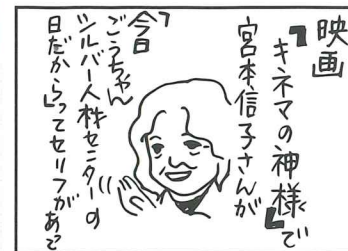 映画
『キネマの神様』で
宮本信子さんが
「今日
ごうちゃん
シルバー人材センターの
日だから」ってセリフがあって